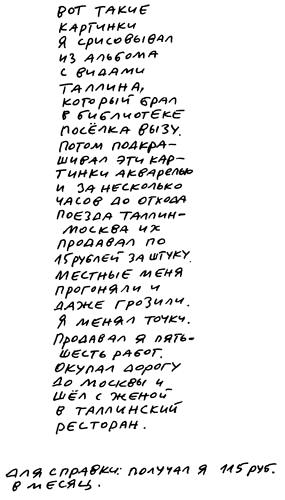 ВОТ ТАКИЕ
КАРТИНКИ
Я СРИСОВЫВАЛ
ИЗ АЛЬБОМА
С ВИДАМИ
ТАЛЛИНА,
КОТОРЫЙ БРАЛ
В БИБЛИОТЕКЕ
ПОСЁЛКА ВЫЗУ.
ПОТОМ ПОДКРА-
ШИВАЛ ЭТИ КАР-
ТИНКИ АКВАРЕЛЬЮ
И ЗА НЕСКОЛЬКО
ЧАСОВ ДО ОТХОДА
ПОЕЗДА ТАЛЛИН-
МОСКВА ИХ
ПРОДАВАЛ ПО
15 РУБЛЕЙ ЗА ШТУКУ.
МЕСТНЫЕ МЕНЯ
ПРОГОНЯЛИ И
ДАЖЕ ГРОЗИЛИ.
Я МЕНЯЛ ТОЧКИ.
ПРОДАВАЛ Я ПЯТЬ-
ШЕСТЬ РАБОТ.
ОКУПАЛ ДОРОГУ
ДО МОСКВЫ И
ШЁЛ С ЖЕНОЙ
В ТАЛЛИНСКИЙ
РЕСТОРАН.
ДЛЯ СПРАВКИ: ПОЛУЧАЛ Я 115 РУБ.
В МЕСЯЦ.